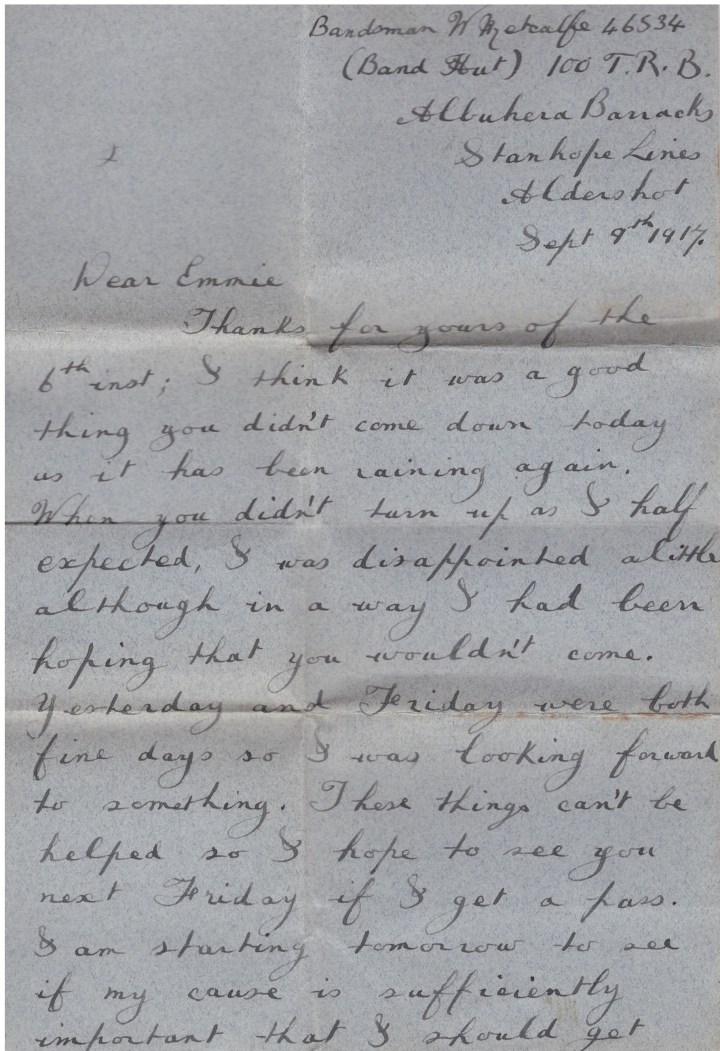 Bandsman W Metcalfe 46534
(Band Hut) 100 T.R.B.
Albuhera Barracks
Stanhope Lines
Aldershot
Sept 9th 1917.
Dear Emmie
Thanks for yours of the
6th inst; I think it was a good
thing you didn't come down today
as it has been raining again.
When you didn't turn up as I half
expected, I was disappointed a little
although in a way I had been
hoping that you wouldn't come.
Yesterday and Friday were both
fine days so I was looking forward
to something. These things can't be
helped so I hope to see you
next Friday if I get a pass.
I am starting tomorrow to see
if my cause is sufficiently
important that I should get